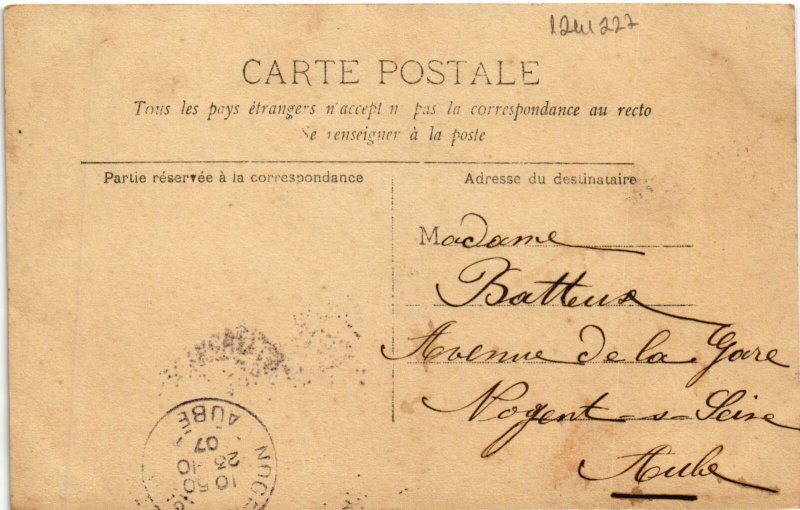 CARTE POSTALE
Tous les pays étrangers n'accept n pas la correspondance au recto
Se renseigner à la poste
Partie réservée à la correspondance
Adresse du destinataire
Madame
Batteux
Avenue de la Gare
Nogent-s-Seine
Aube
AUBE
10 50
23-10
07